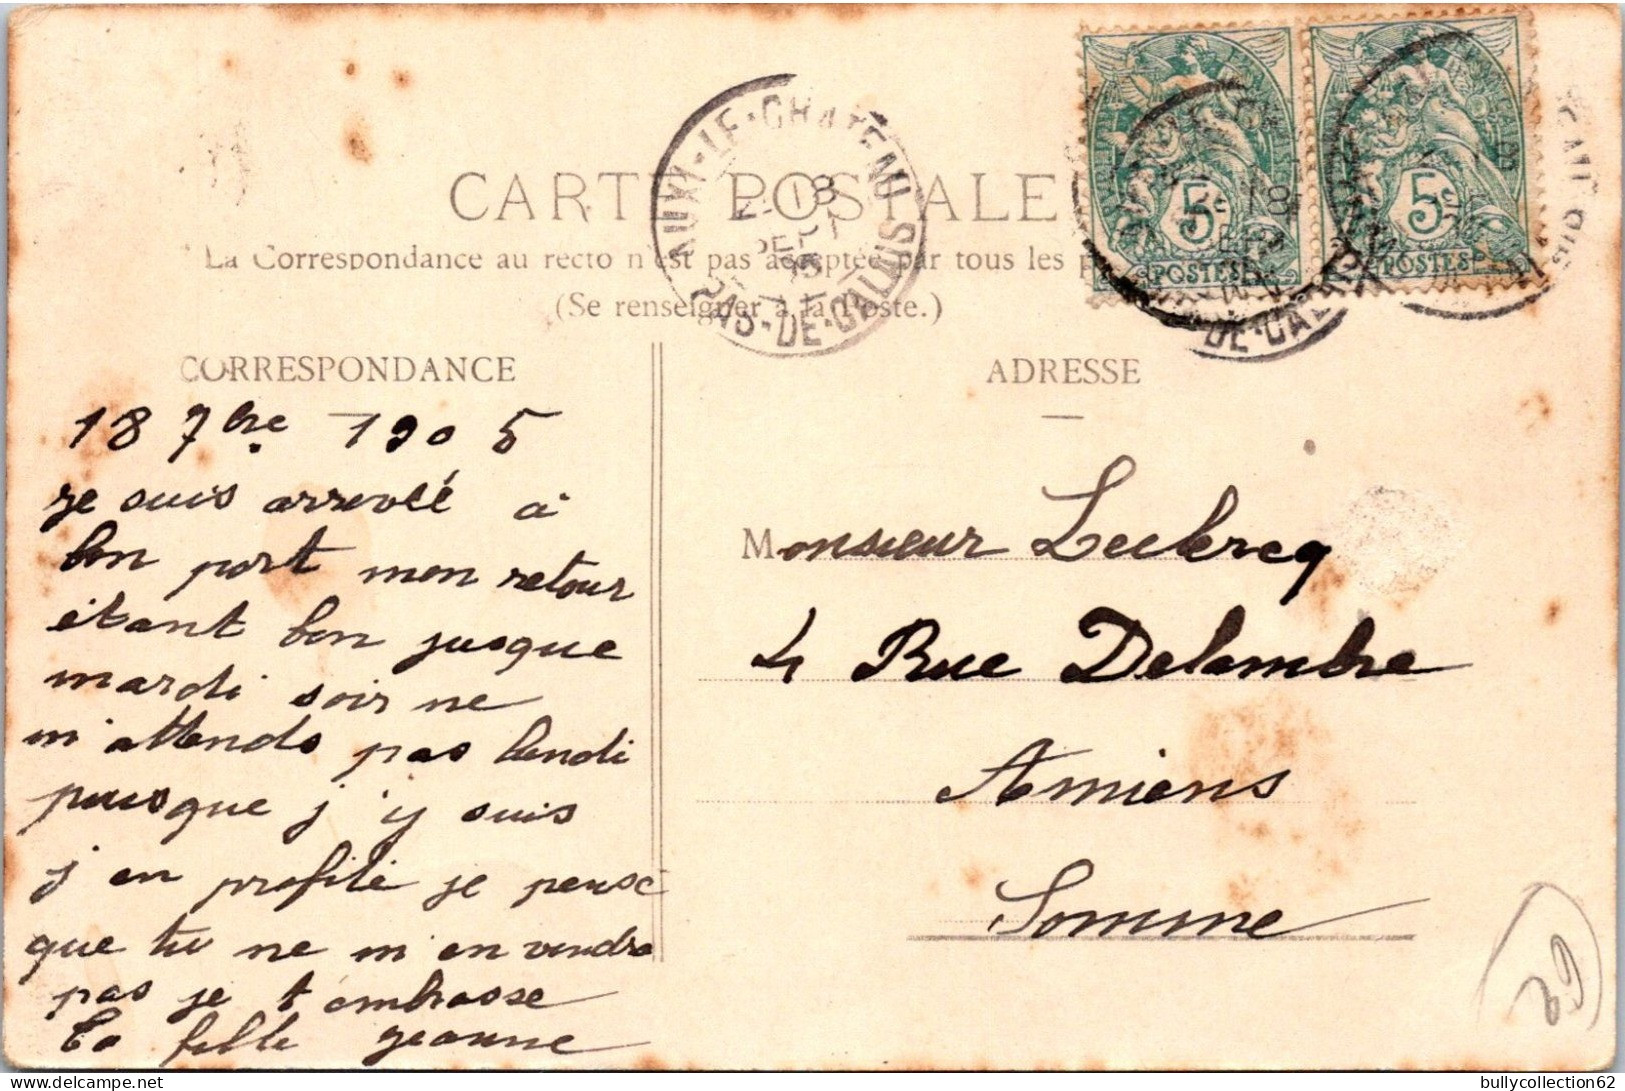 CARTE POSTALE
La Correspondance au recto n'est pas acceptée par tous les
(Se renseigner à la Poste.)
AUXI-LE-CHATEAU
18
SEPT
05
PAS-DE-CALAIS
5c
POSTES
5c
POSTES
DE-CALAIS
CORRESPONDANCE
18 7bre 1905
je suis arrivée à
bon port mon retour
étant bon jusque
mardi soir ne
m'attends pas lundi
puisque j'y suis
j en profite je pense
que tu ne m'en voudra
pas je t embrasse
ta fille Jeanne
ADRESSE
Monsieur Leclercq
4 Rue Delambre
Amiens
Somme
bullycollection62